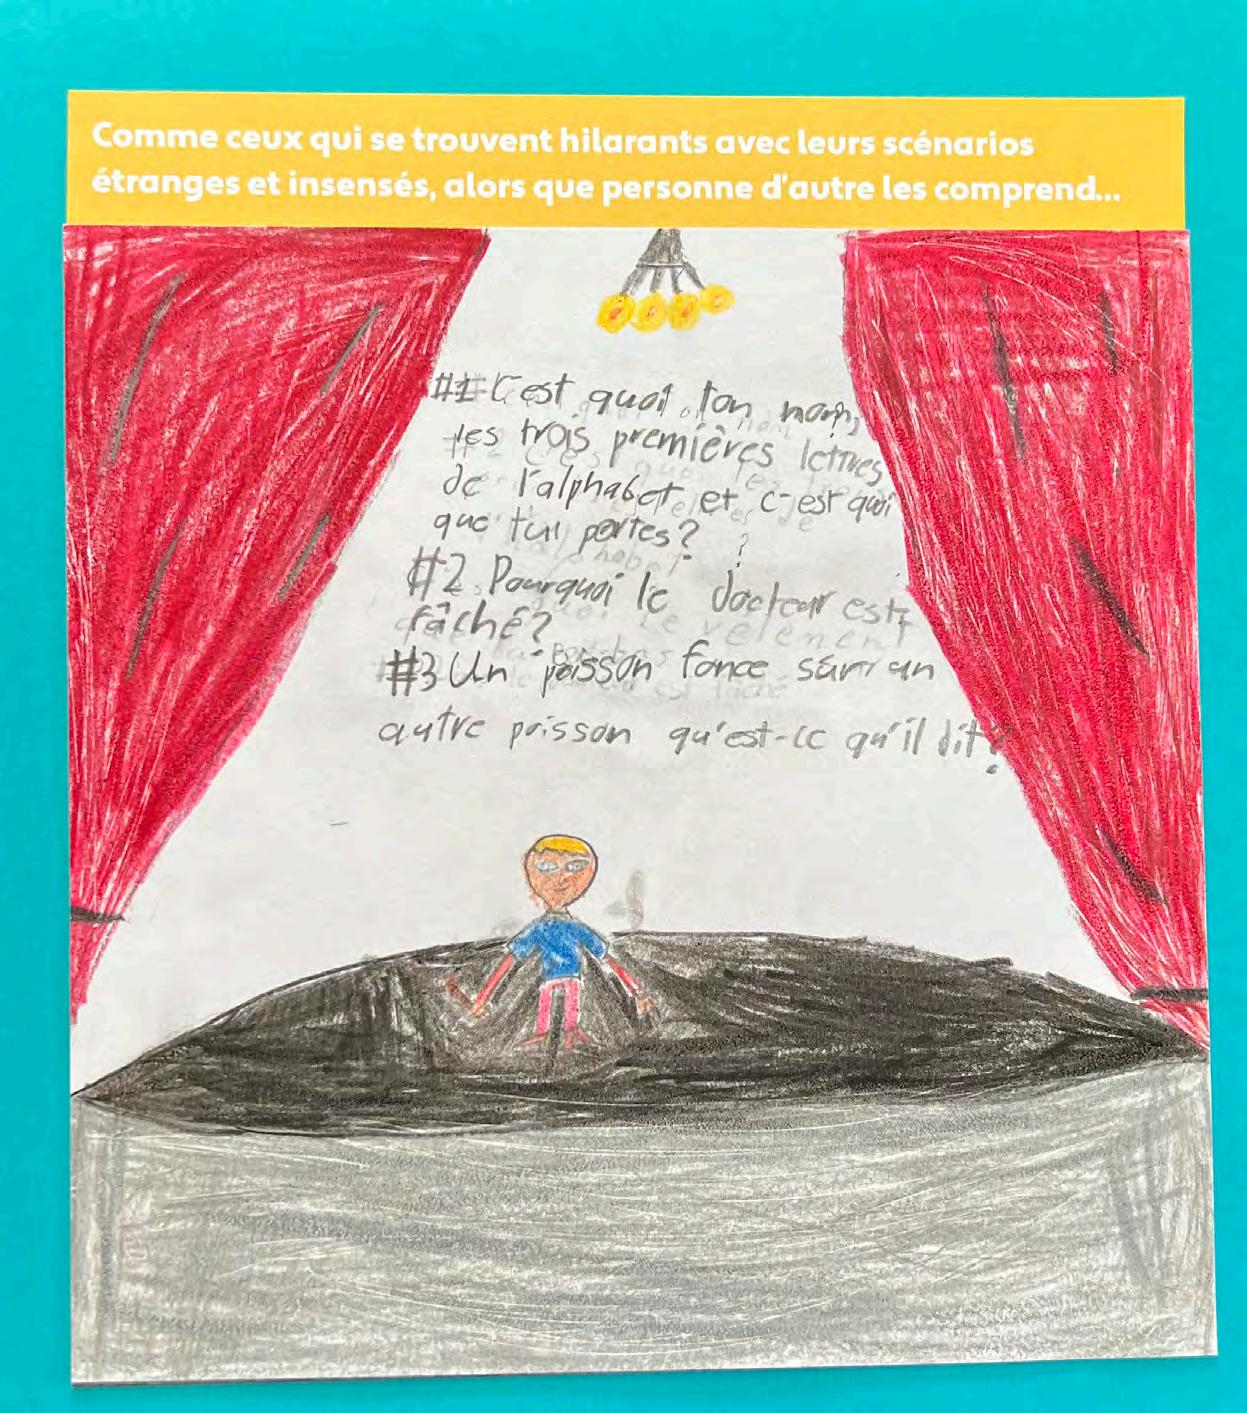 Comme ceux qui se trouvent hilarants avec leurs scénarios
étranges et insensés, alors que personne d'autre les comprend...
#1 C'est quoi ton nom,
les trois premières lettres
de l'alphabet et c'est quoi
que tu portes?
#2 Pourquoi le docteur est
fâché?
#3 Un poisson fonce sur un
autre poisson qu'est-ce qu'il dit?